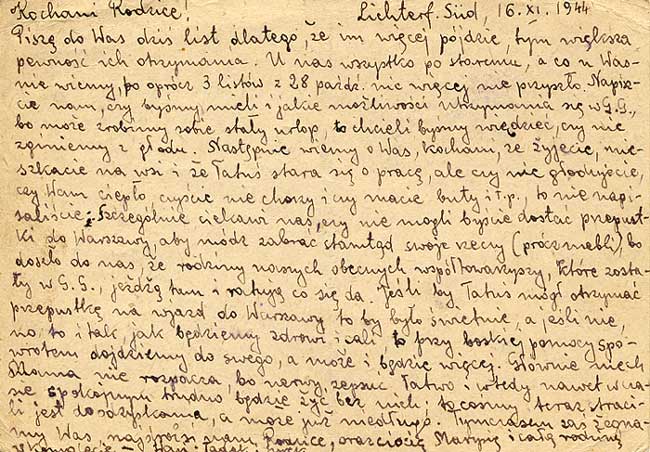 Kochani Rodzice! Lichterf. Süd, 16.XI.1944
Piszę do Was dziś list dlatego, że im więcej pójdzie, tym większa
pewność ich otrzymania. U nas wszystko po staremu, a co u Was-
nie wiemy, bo oprócz 3 listów z 28 paźdz. nic więcej nie przyszło. Napisz-
cie nam, czy byśmy mieli i jakie możliwości utrzymania się w G.G.,
bo może zrobimy sobie stały urlop, to chcieli byśmy wiedzieć, czy nie
zginiemy z głodu. Następnie wiemy o Was, Kochani, że żyjecie, mie-
szkacie na wsi i że Tatuś stara się o pracę, ale czy nie głodujecie,
czy Wam ciepło, czyście nie chorzy i czy macie buty i t.p., to nie napi-
saliście. Szczególnie ciekawi nas, czy nie mogli byście dostać przepust-
ki do Warszawy, aby módz zabrać stamtąd swoje rzeczy (prócz mebli), bo
doszło do nas, że rodziny naszych obecnych współtowarzyszy, które zosta-
ły w G.G., jeżdżą tam i ratują co się da. Jeśli by Tatuś mógł otrzymać
przepustkę na wjazd do Warszawy to by było świetnie, a jeśli nie,
no, to i tak, jak będziemy zdrowi i cali, to przy boskiej pomocy spo-
wrotem dojdziemy do swego, a może i będzie więcej. Głównie niech
Mama nie rozpacza, bo nerwy zepsuć łatwo i wtedy nawet w cza-
sie spokojnym trudno będzie żyć bez nich, to cośmy teraz straci-
li jest do odzyskania, a może już niedługo. Tymczasem zaś żegna-
my Was, najdrożsi, Rodzice, oraz ciocię Marynę i całą rodzinę